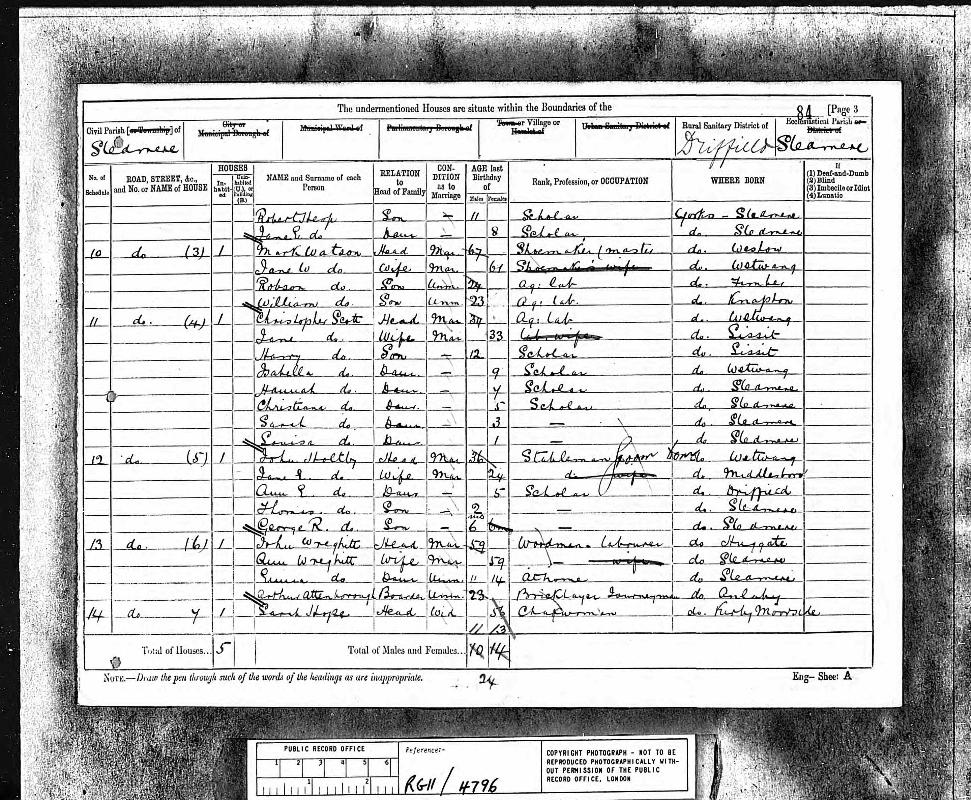 The undermentioned Houses are situate within the Boundaries of the
84 [Page 3
Civil Parish [or Township] of City or Municipal Borough of Municipal Ward of Parliamentary Borough of Town or Village or Hamlet of Urban Sanitary District of Rural Sanitary District of Ecclesiastical Parish or District of
Sledmere Driffield Sledmere
No. of Schedule ROAD, STREET, &c., and No. or NAME of HOUSE HOUSES In-habit-ed Unin-habited (U.), or Building (B.) NAME and Surname of each Person RELATION to Head of Family CON-DITION as to Marriage AGE last Birthday of Males Females Rank, Profession, or OCCUPATION WHERE BORN If (1) Deaf-and-Dumb (2) Blind (3) Imbecile or Idiot (4) Lunatic
Robert Son — 11 Scholar Yorks - Sledmere
Jane E. do Daur — 8 Scholar do. Sledmere
10 do (3) 1 Mark Watson Head Mar 67 Shoemaker (master do. Weslow
Jane W do. Wife Mar 61 Shoemaker's wife do. Wetwang
Robson do. Son Unm 24 Ag: lab do. Fimber
William do. Son Unm 23 Ag: lab. do. Knapton
11 do. (4) 1 Christopher Scott Head Mar Ag: lab do. Wetwang
Jane do. Wife Mar 33 do. Sissit
Harry do. Son — 12 Scholar do. Sissit
Isabella do. Daur. — 9 Scholar do. Wetwang
Hannah do. Daur. — 7 Scholar do. Sledmere
Christiana do. Daur. — 5 Scholar do. Sledmere
Sarah do. Daur. — 3 — do. Sledmere
Louisa do. Daur. — 1 — do Sledmere
12 do (5) 1 John Holtby Head Mar 36 Stableman Groom Dom do Wetwang
Jane E. do. Wife Mar 24 do wife do. Middlesbro'
Ann E. do. Daur — 5 Scholar do. Driffield
Thomas. do. Son — 2 — do. Sledmere
George R. do. Son — 6 mo — do. Sledmere
13 do. (6) 1 John Wreghitt Head Mar 59 Woodman's labourer do Huggate
Ann Wreghitt Wife Mar 59 — wife do. Sledmere
Emma do Daur Unm. " 14 At home do Sledmere
Arthur Attenborough Boarder Unm. 23 Bricklayer Journeyman do. Anlaby
14 do. 7 1 Sarah Hope Head Wid 56 Charwoman do. Kirby Moorside
11 13
Total of Houses... 5 Total of Males and Females... 10 14
NOTE.—Draw the pen through such of the words of the headings as are inappropriate. 24 Eng- Sheet A
PUBLIC RECORD OFFICE
1 2 3 4 5 6
1 2
Reference:-
RG11 / 4796
COPYRIGHT PHOTOGRAPH - NOT TO BE
REPRODUCED PHOTOGRAPHICALLY WITH-
OUT PERMISSION OF THE PUBLIC
RECORD OFFICE, LONDON